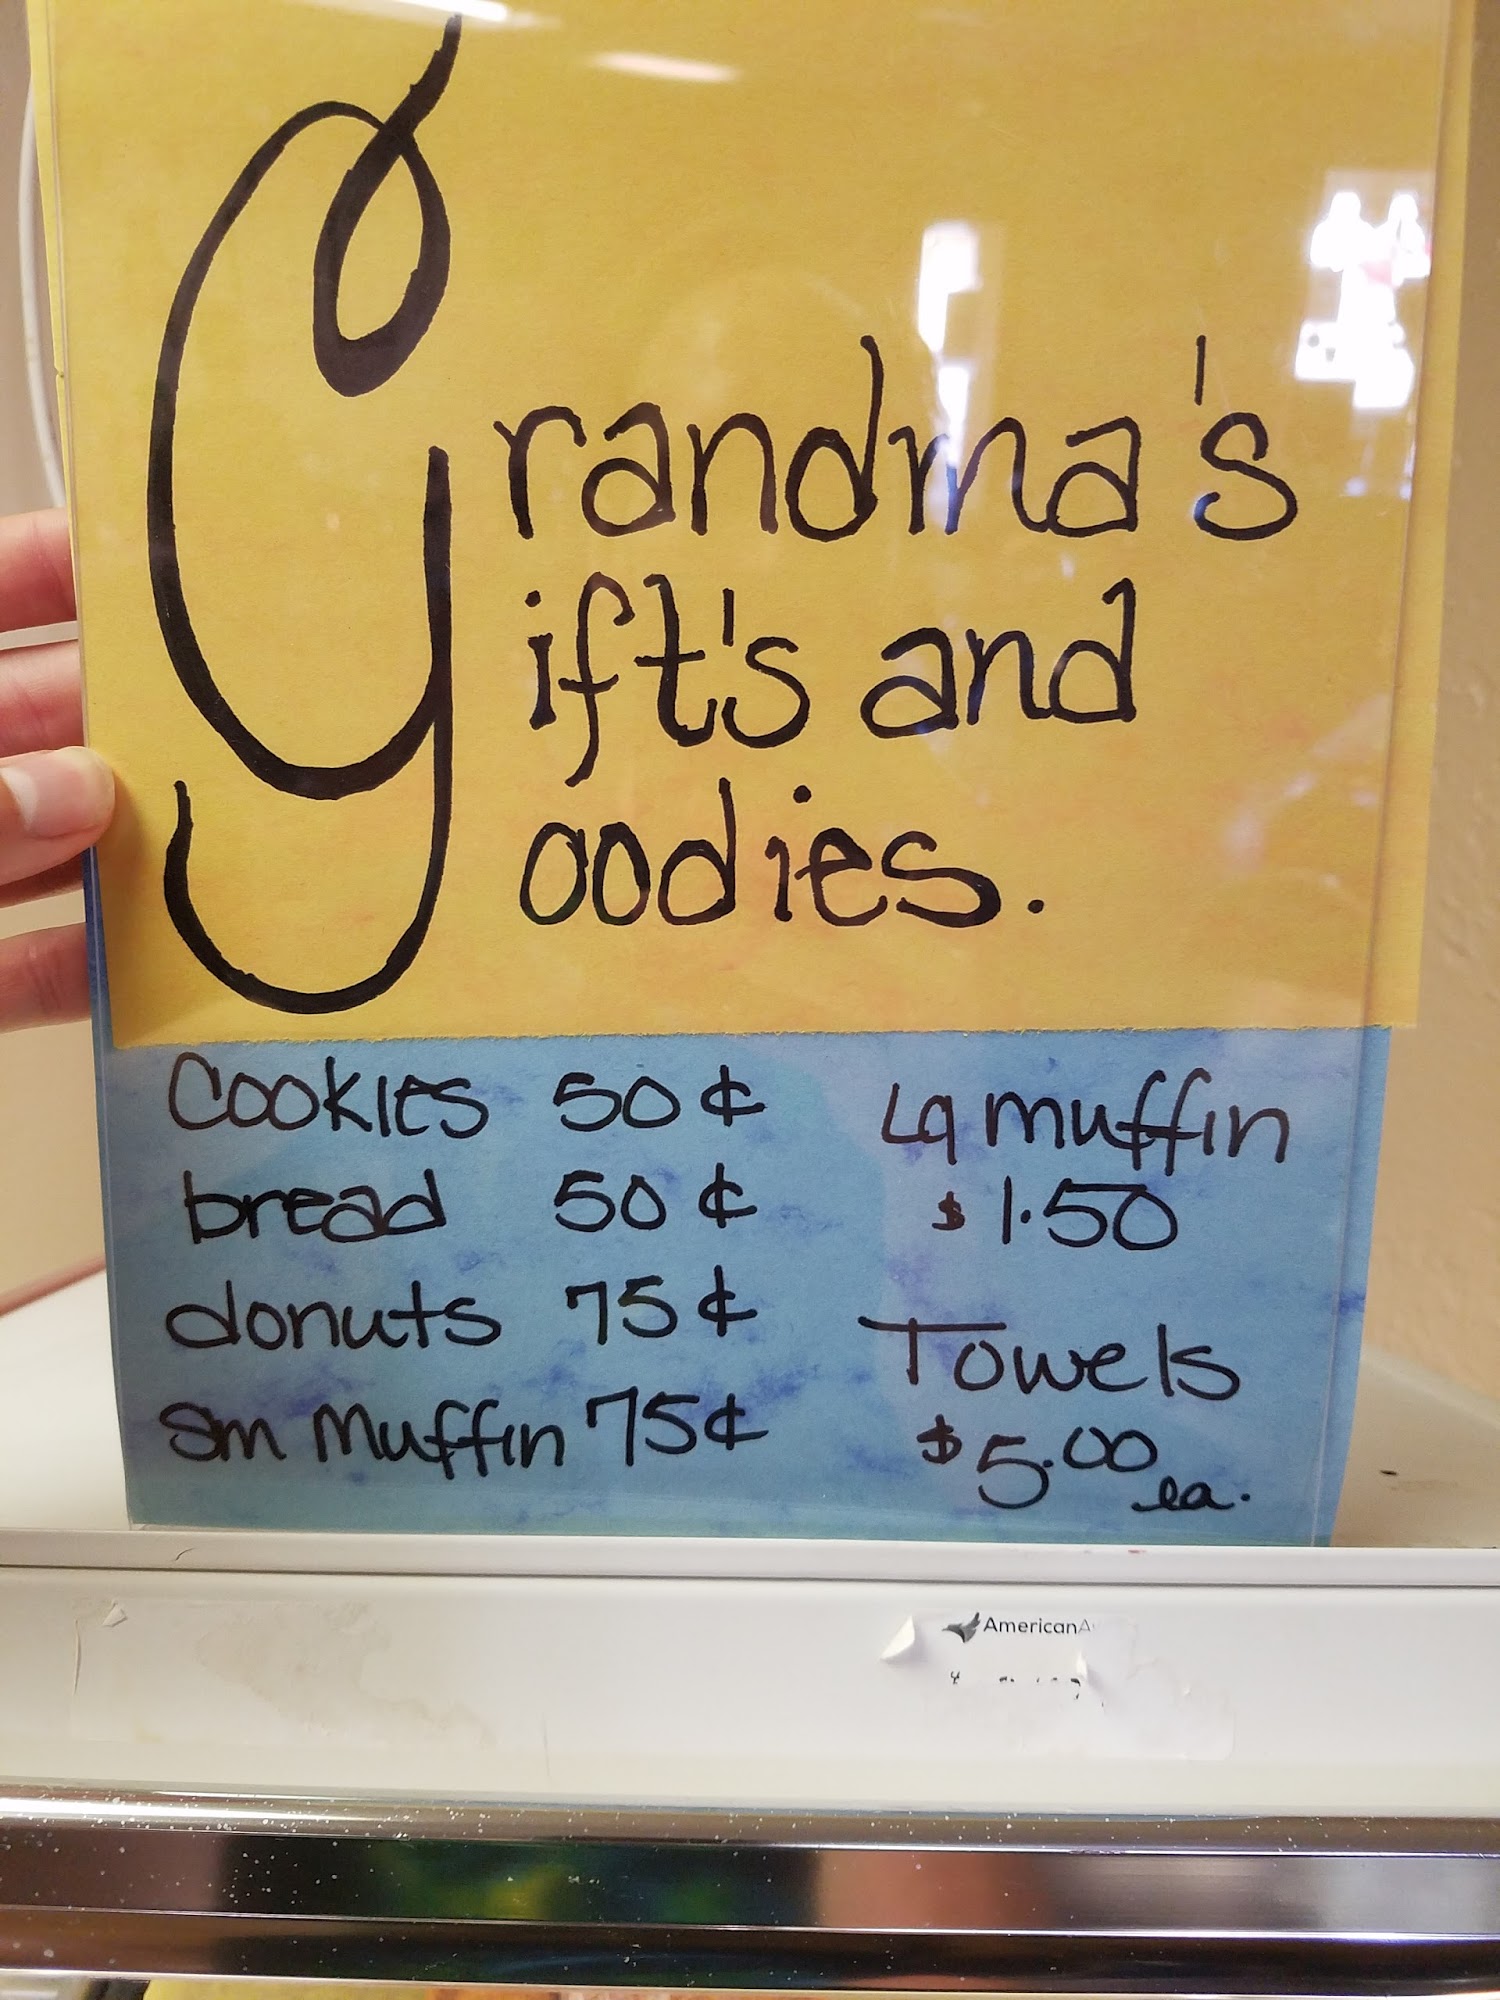 Grandma's
ift's and
oodies.
Cookies 50¢
bread 50¢
donuts 75¢
Sm Muffin 75¢
Lg muffin
$1.50
Towels
$5.00 ea.
American